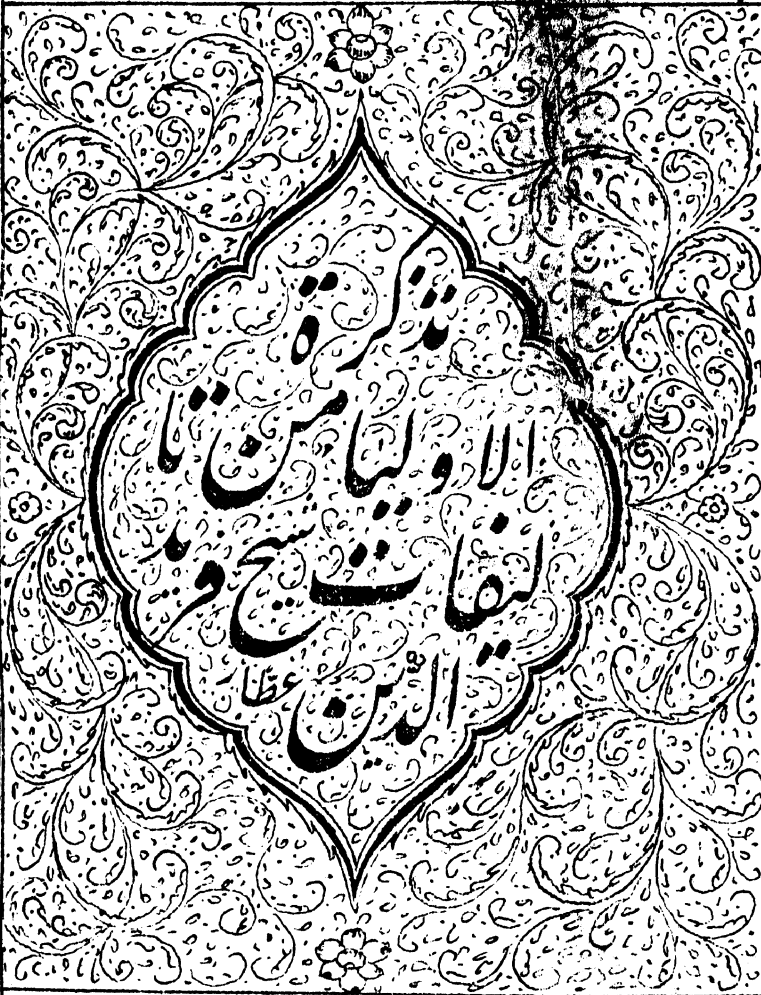 تذكرة
الاوليا من تا
ليفات شيخ فريد
الدين عطّار